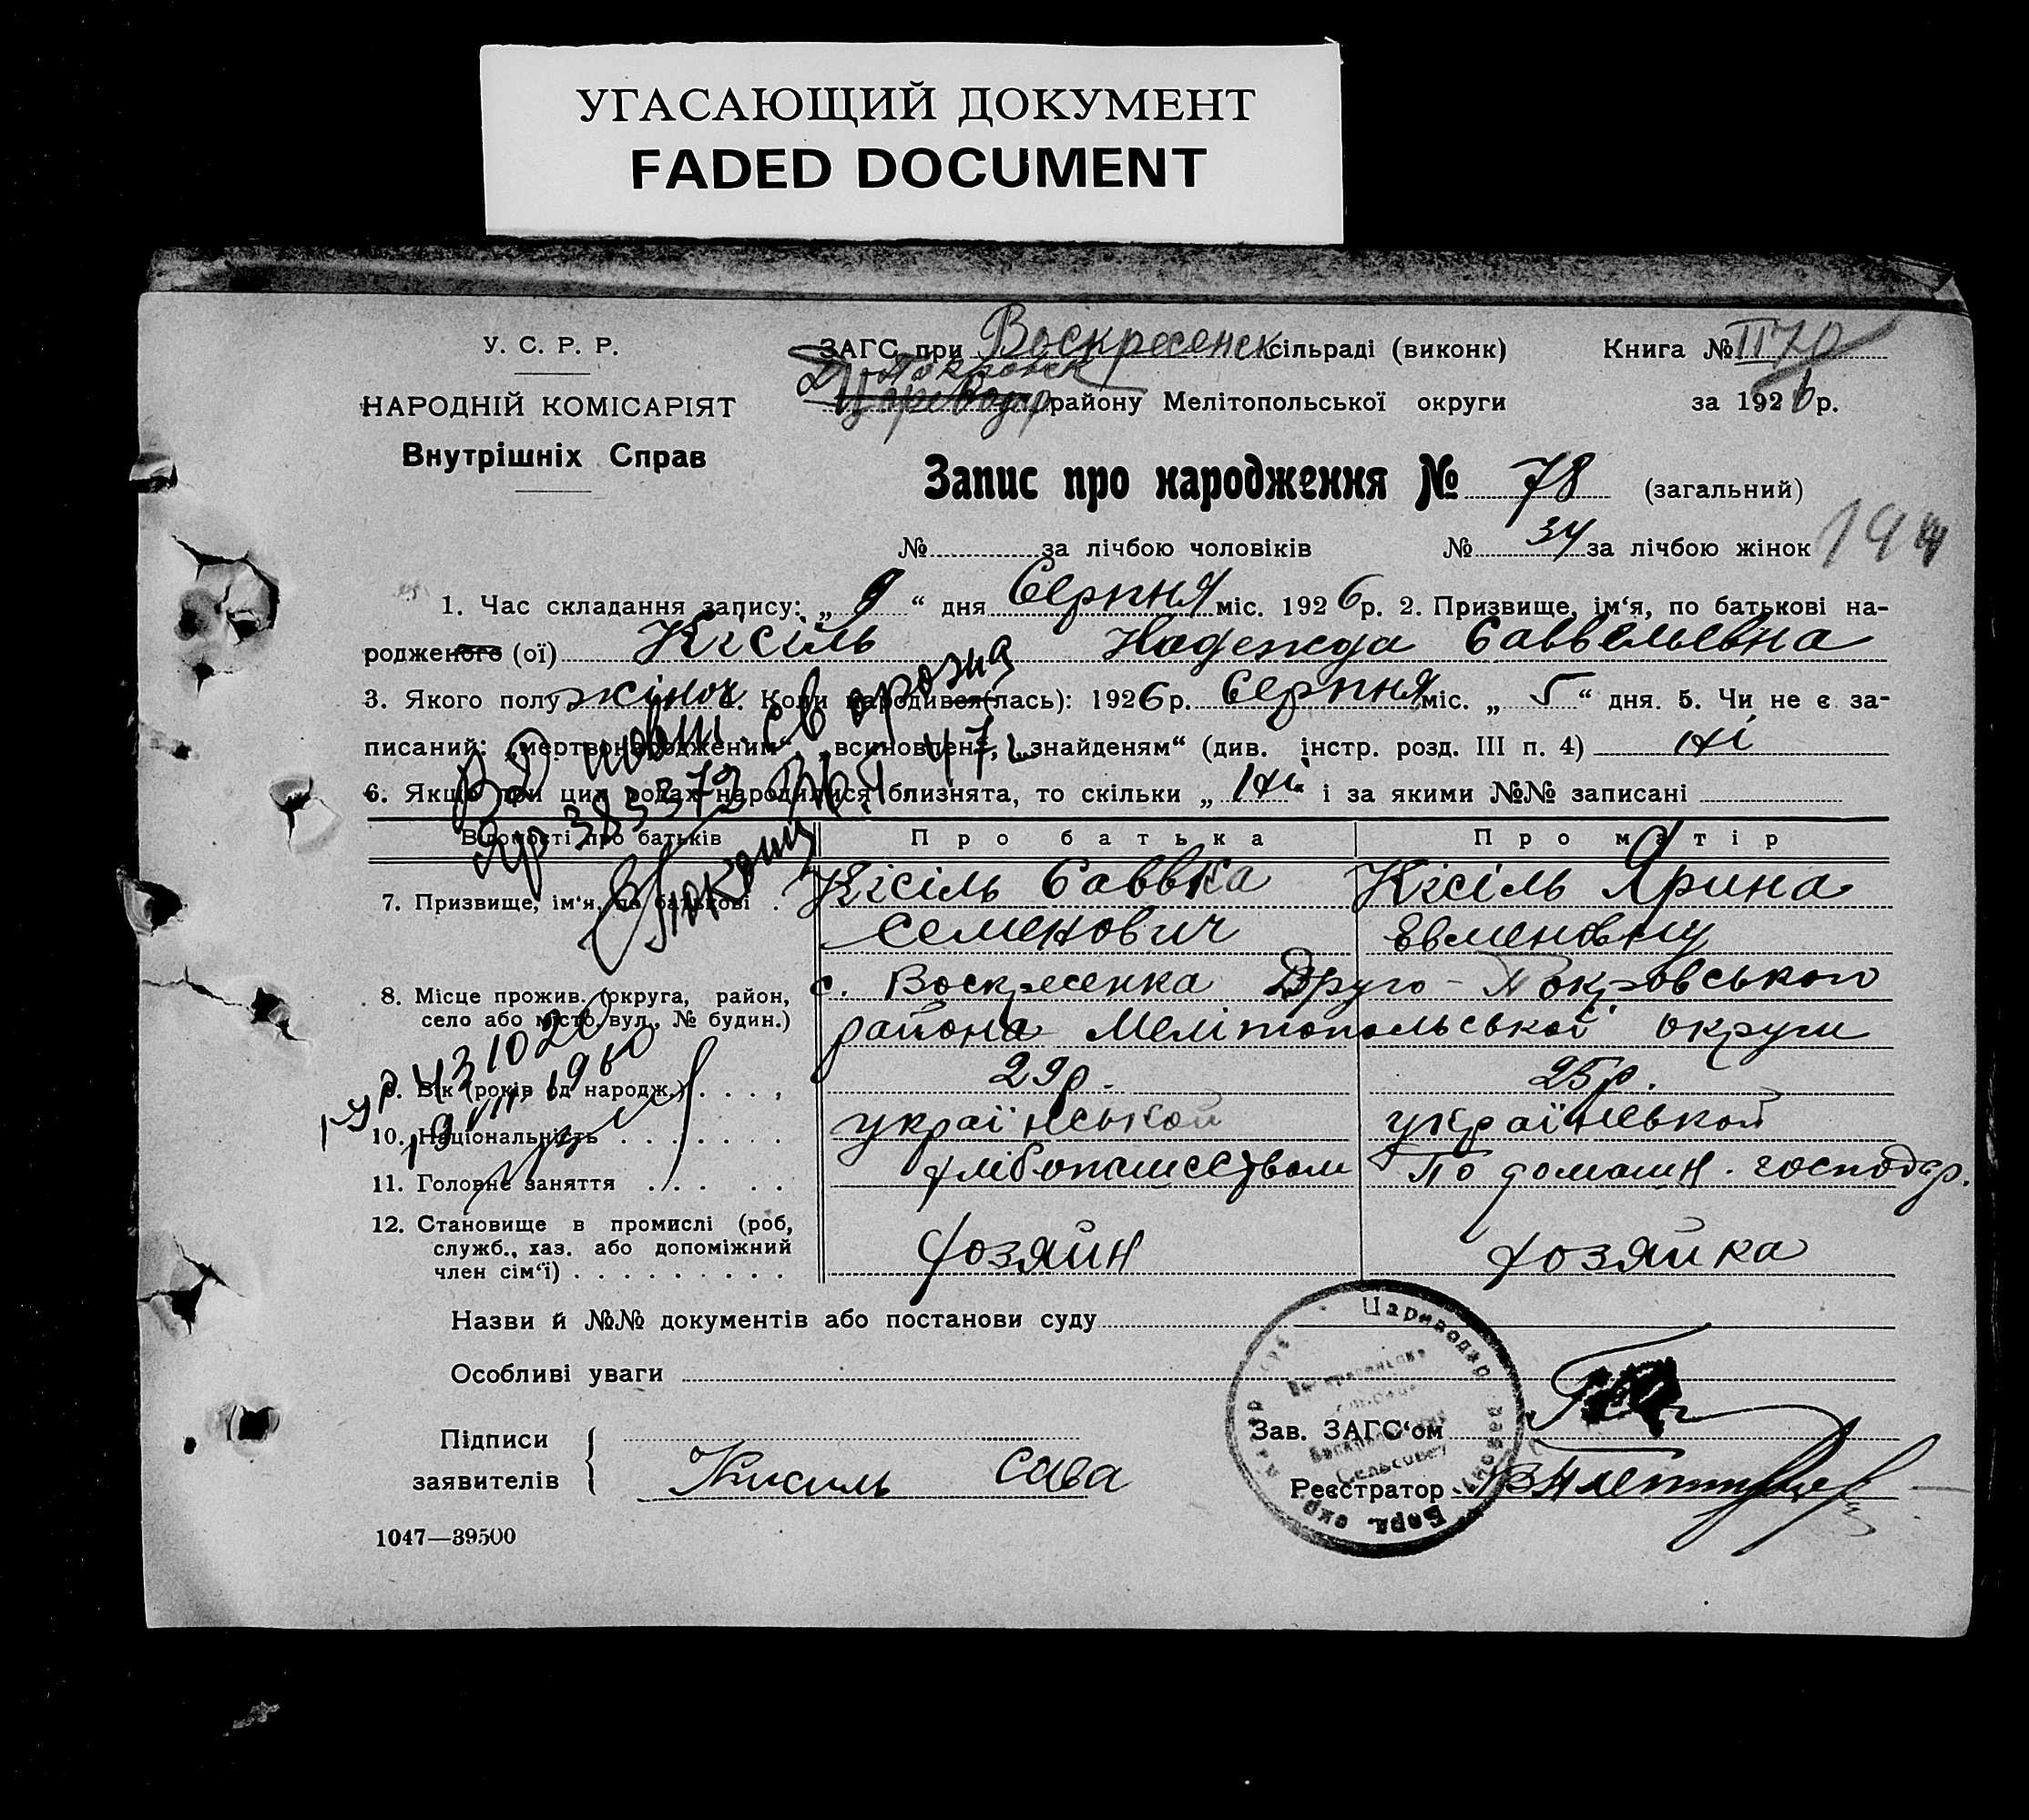 УГАСАЮЩИЙ ДОКУМЕНТ
FADED DOCUMENT
У. С. Р. Р.
НАРОДНІЙ КОМІСАРІЯТ
Внутрішніх Справ
ЗАГС при Воскресенск сільраді (виконк)
Д Покровск
Цареводар району Мелітопольської округи
Книга № II
за 1926 р.
Запис про народження № 78 (загальний)
№ за лічбою чоловіків № 34 за лічбою жінок
194
1. Час складання запису: „ 9 “ дня Серпня міс. 1926 р. 2. Призвище, ім‘я, по батькові на-
родженого (ої) Кісіль Надежда Саввельевна
3. Якого полу жіноч 4. Коли народився(лась): 1926 р. Серпня міс. „ 5 “ дня. 5. Чи не є за-
писаний: „мертвонародженим“, „всиновлен“, „знайденям“ (див. інстр. розд. III п. 4) ні
6. Якщо при цих родах народилися близнята, то скільки „ ні “ і за якими №№ записані
Відомості про батьків Про батька Про матір
7. Призвище, ім‘я, по батькові . Кісіль Саввка Кісіль Ярина
Семенович Евменовну
8. Місце прожив. (округа, район, с. Воскресенка Друго-Покровського
село або місто, вул., № будин.) района Мелітопольської округи
9. Вік (років од народж.) . . . , 29 р. 25 р.
10. Національність . . . . . . . української української
11. Головне заняття . . . . . хлібопашеством По домашн. господар.
12. Становище в промислі (роб,
служб., хаз. або допоміжний
член сім‘ї) . . . . . . . . . Хозяин Хозяйка
383372
431020
19 VIII 1960
Назви й №№ документів або постанови суду
Особливі уваги
Підписи
заявителів Кисиль Сава
Зав. ЗАГС‘ом
Реєстратор
Царводар
Сельсовет
1047—39500